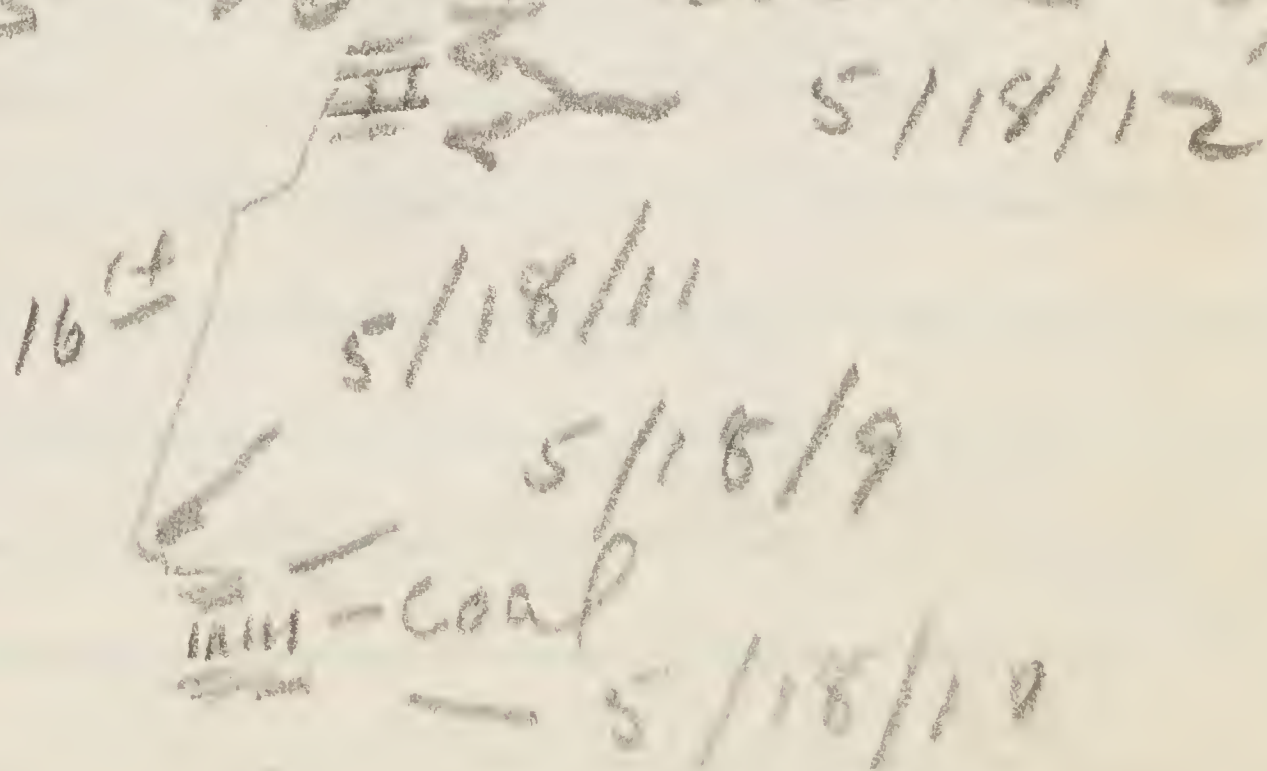 5/18/12
16
5/18/11
5/18/9
- Coal
5/18/10